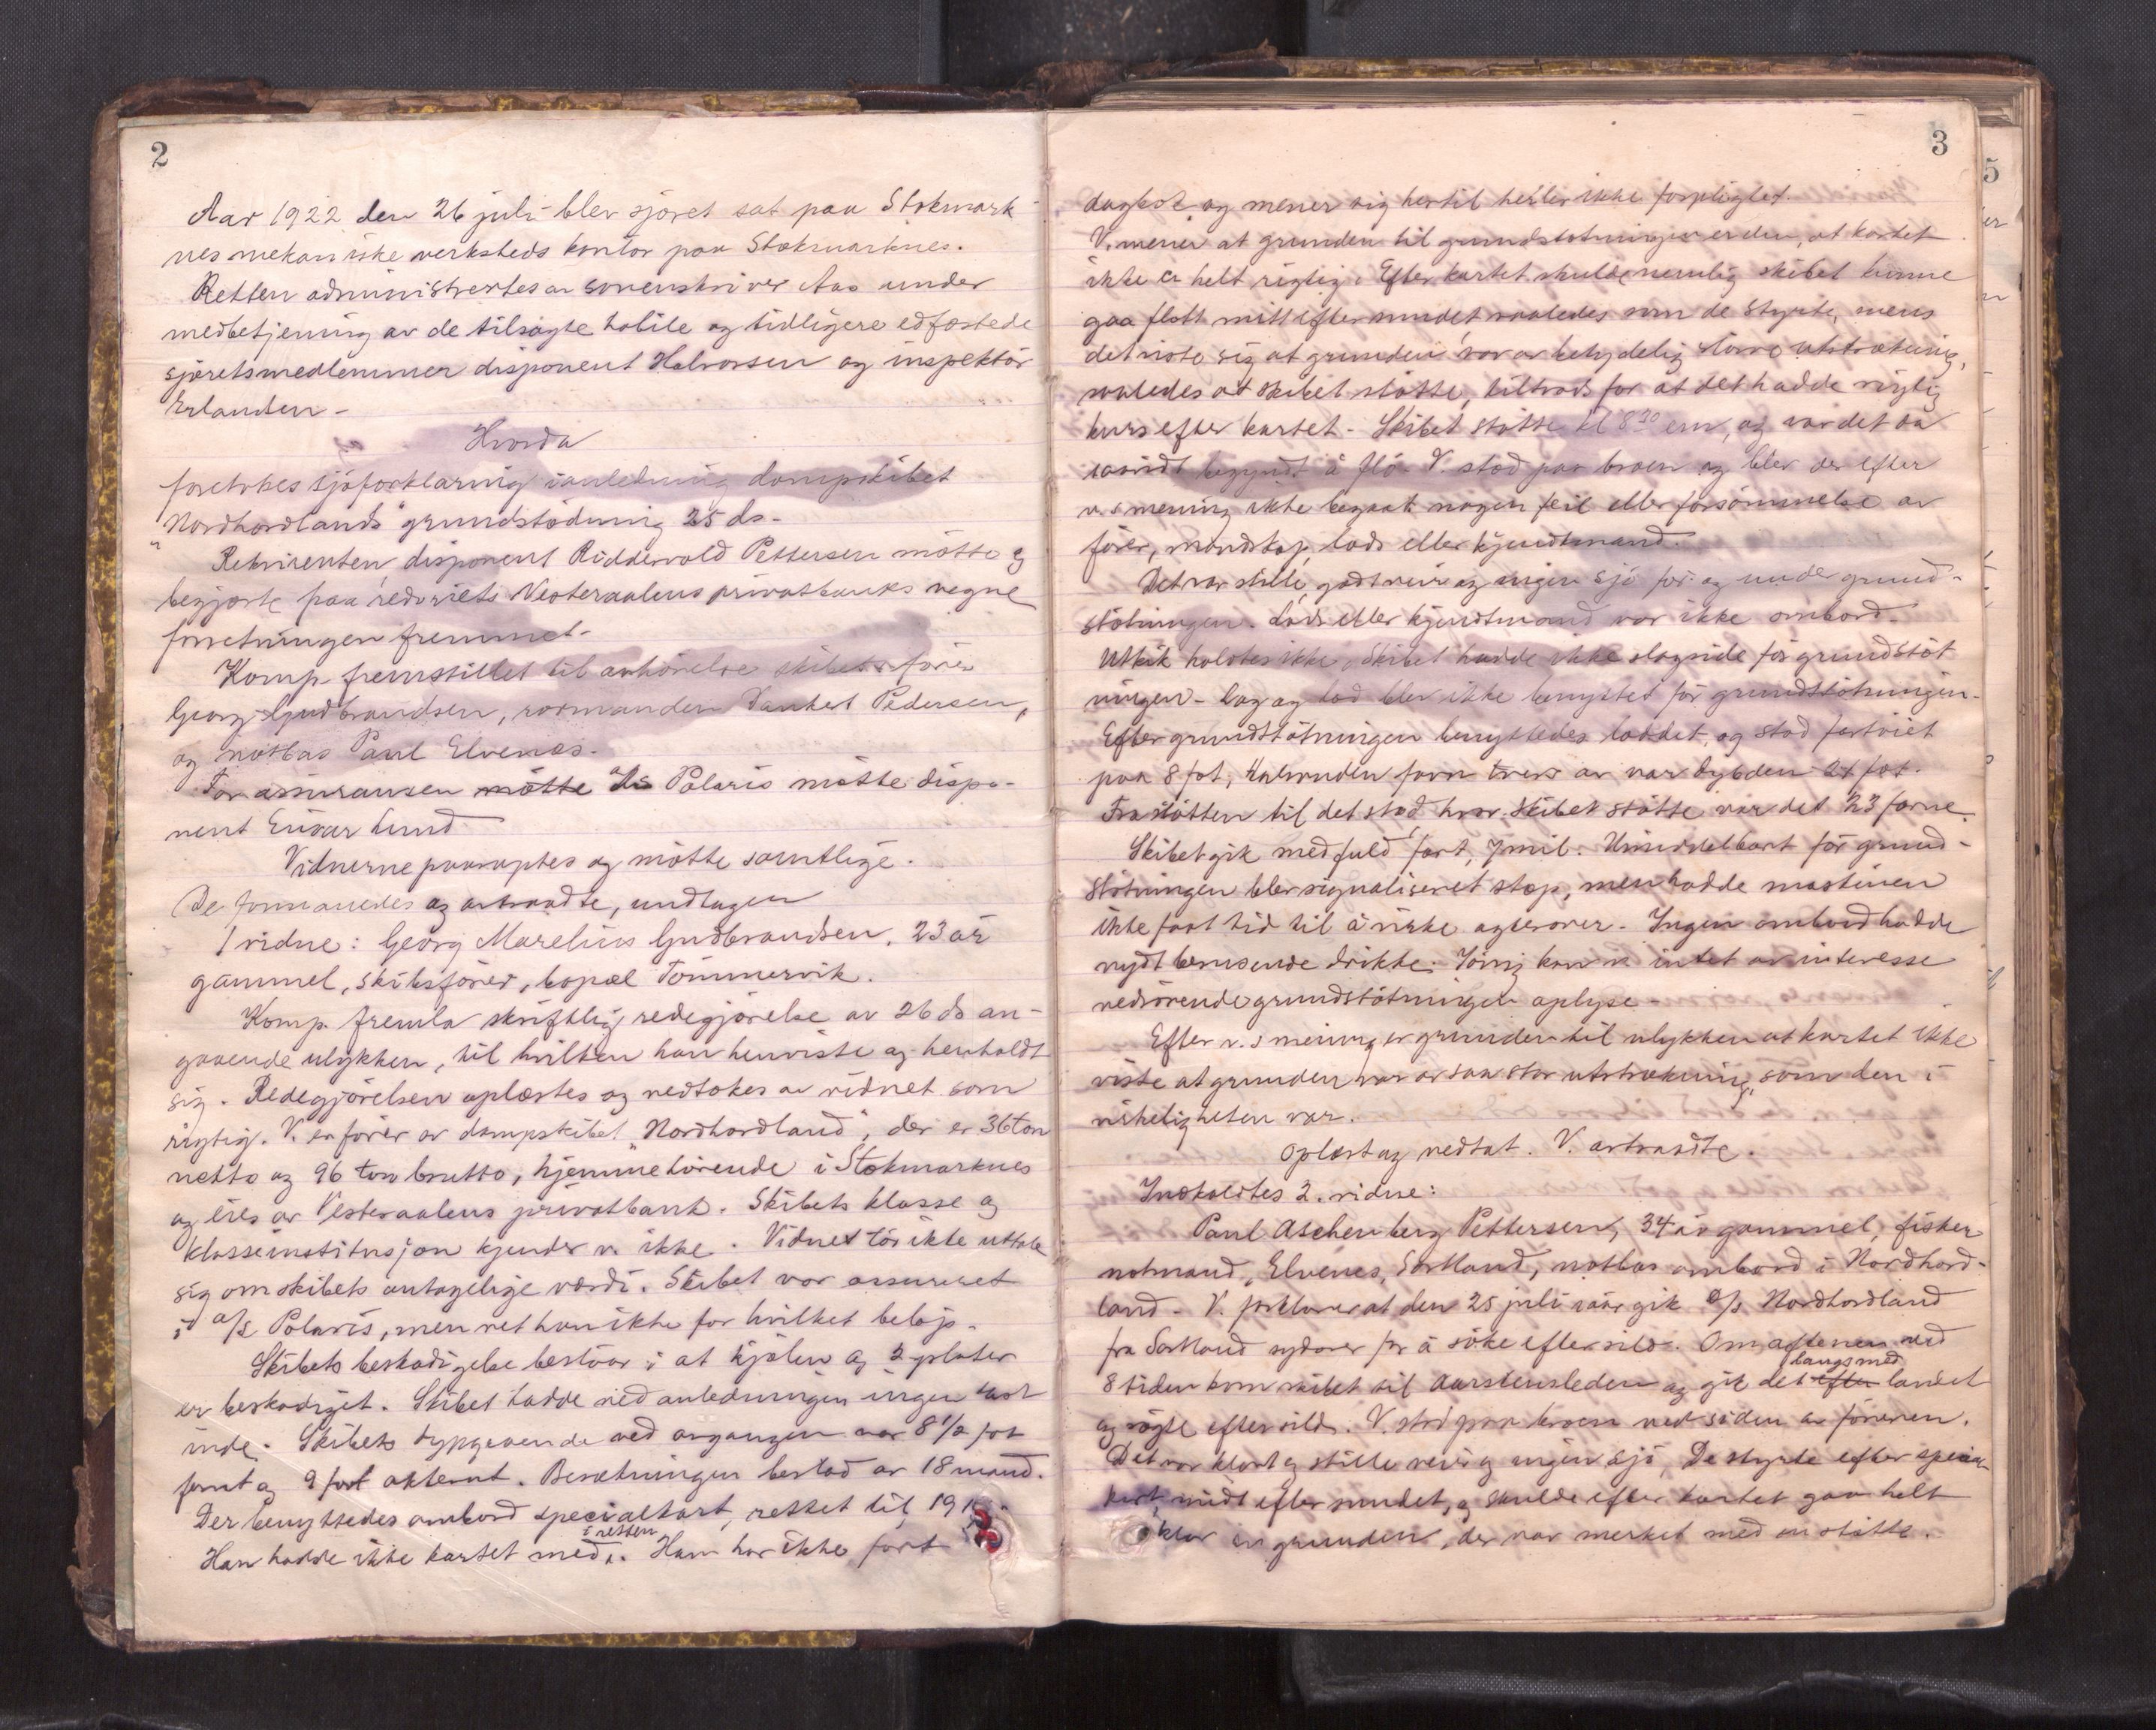 2
Aar 1922 den 26 juli blev sjøret sat paa Stokmark-
nes mekaniske verksteds kontor paa Stokmarknes.
Retten administrertes av sorenskriver Aas under
medbetjening av de tilsagte habile og tidligere edfæstede
sjøretsmedlemmer disponent Halvorsen og inspektör
Erlandsen -
Hvorda
foretokes sjöforklaring i anledning dampskibet
"Nordhordlands" grundstödning 25 ds.
Rekvirenten, disponent Riddervold Pettersen mötte og
begjærte paa rederiets Vesteraalens privatbanks vegne
forretningen fremmet.
Komp. fremstillet til avhörelse skibets förer
Georg Gudbrandsen, rormanden Pedersen,
og notbas Paul Elvenæs.
For assuransen mötte a/s Polaris mötte dispo-
nent Einar Lund
Vidnerne paaroptes og mötte samtlige.
De formanedes og avtraadte, undtagen
1 vidne: Georg Marelius Gudbrandsen, 23 år
gammel, skibsförer, bopæl Tömmervik.
Komp. fremla skriftlig redegjörelse av 26 ds an-
gaaende ulykken, til hvilken han henviste og henholdt
sig. Redegjörelsen oplæstes og vedtokes av vidnet som
rigtig. V. er förer av dampskibet "Nordhordland", der er 36 ton
netto og 96 ton brutto, hjemmehörende i Stokmarknes
og eies av Vesteraalens privatbank. Skibets klasse og
klasseinstitusjon kjender v. ikke. Vidnet tör ikke uttale
sig om skibets antagelige værdi. Skibet var assureret
i a/s Polaris, men vet han ikke for hvilket belöp.
Skibets beskadigelse bestaar i at kjölen og 2 plater
er beskadiget. Skibet hadde ved anledningen ingen last
inde. Skibets dypgaaende ved avgangen var 8 1/2 fot
forut og 9 fot akterut. Besetningen bestod av 18 mand.
Der benyttedes ombord specialkart, rettet til 19
Han hadde ikke kartet med i retten. Han har ikke fört
3
dagbok og mener sig hertil heller ikke forpligtet.
V. mener at grunden til grundstötningen er den, at kartet
ikke er helt rigtig. Efter kartet skulde nemlig skibet kunne
gaa flott mitt efter sundet saaledes som de styrte, mens
det viste sig at grunden var av betydelig större utstrækning,
saaledes at skibet stötte, tiltrods for at det hadde rigtig
kurs efter kartet. Skibet stötte kl 8 30 em, og var det da
saavidt begyndt å flö. V. stod paa broen og blev der efter
v.s mening ikke begaat nogen feil eller forsömmelse av
förer, mandskap, lods eller kjendtmand.
Det var stille, godt veir og ingen sjö for og under grund-
stötningen. Lods eller kjendtmand var ikke ombord.
Utkik holdtes ikke. Skibet hadde ikke slagside för grundstöt
ningen. Log og lod blev ikke benyttet för grundstötningen.
Efter grundstötningen benyttedes loddet, og stod fartöiet
paa 8 fot, halvanden favn tvers av var dybden 21 fot.
Fra stötten til det sted hvor skibet stötte var det 23 favne.
Skibet gik med fuld fart, 7 mil. Umiddelbart för grund-
stötningen blev signaliseret stop, men hadde maskinen
ikke faat tid til å virke agterover. Ingen ombord hadde
nydt berusende drikke. Iövrig kan v. intet av interesse
vedrörende grundstötningen oplyse -
Efter v.s mening er grunden til ulykken at kartet ikke
viste at grunden var av saa stor utstrækning, som den i
virkeligheten var.
Oplæst og vedtat. V. avtraadte.
Indkaldtes 2. vidne:
Paul Aschenberg Pettersen, 34 år gammel, fisker
notmand, Elvenes, Sortland, notbas ombord i Nordhord-
land. V. forklarer at den 25 juli iaar gik d/s Nordhordland
fra Sortland sydover for å söke efter sild. Om aftenen ved
8 tiden kom skibet til og gik det efter langs med landet
og sögte efter sild. V. stod paa broen ved siden av föreren.
Det var klart og stille veir og ingen sjö. De styrte efter special
kart, midt efter sundet, og skulde efter kartet gaa helt
klar av grunden, der var merket med en stötte.
5